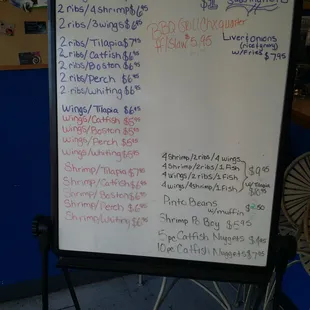 2 ribs/4 shrimp $6.95
2 ribs/3 wings $6.95
2 ribs/Tilapia $7.45
2 ribs/Catfish $6.95
2 ribs/Boston $6.95
2 ribs/Perch $6.45
2 ribs/whiting $6.45
Wings/Tilapia $6.45
wings/Catfish $5.95
wings/Boston $5.95
wings/Perch $5.45
wings/Whiting $5.45
Shrimp/Tilapia $7.45
Shrimp/Catfish $6.95
Shrimp/Boston $6.95
Shrimp/Perch $6.45
Shrimp/Whiting $6.45
w/Slaw $5.45
Liver & onions
w/Fries $7.95
4 shrimp/2 ribs/4 wings
4 shrimp/2 ribs/1 Fish
4 wings/2 ribs/1 Fish
4 wings/4 shrimp/1 Fish
$9.95
w/Tilapia
Pinto Beans
w/muffin $2.50
Shrimp Po Boy $5.95
5 pc Catfish Nuggets
10 pc Catfish Nuggets $7.95